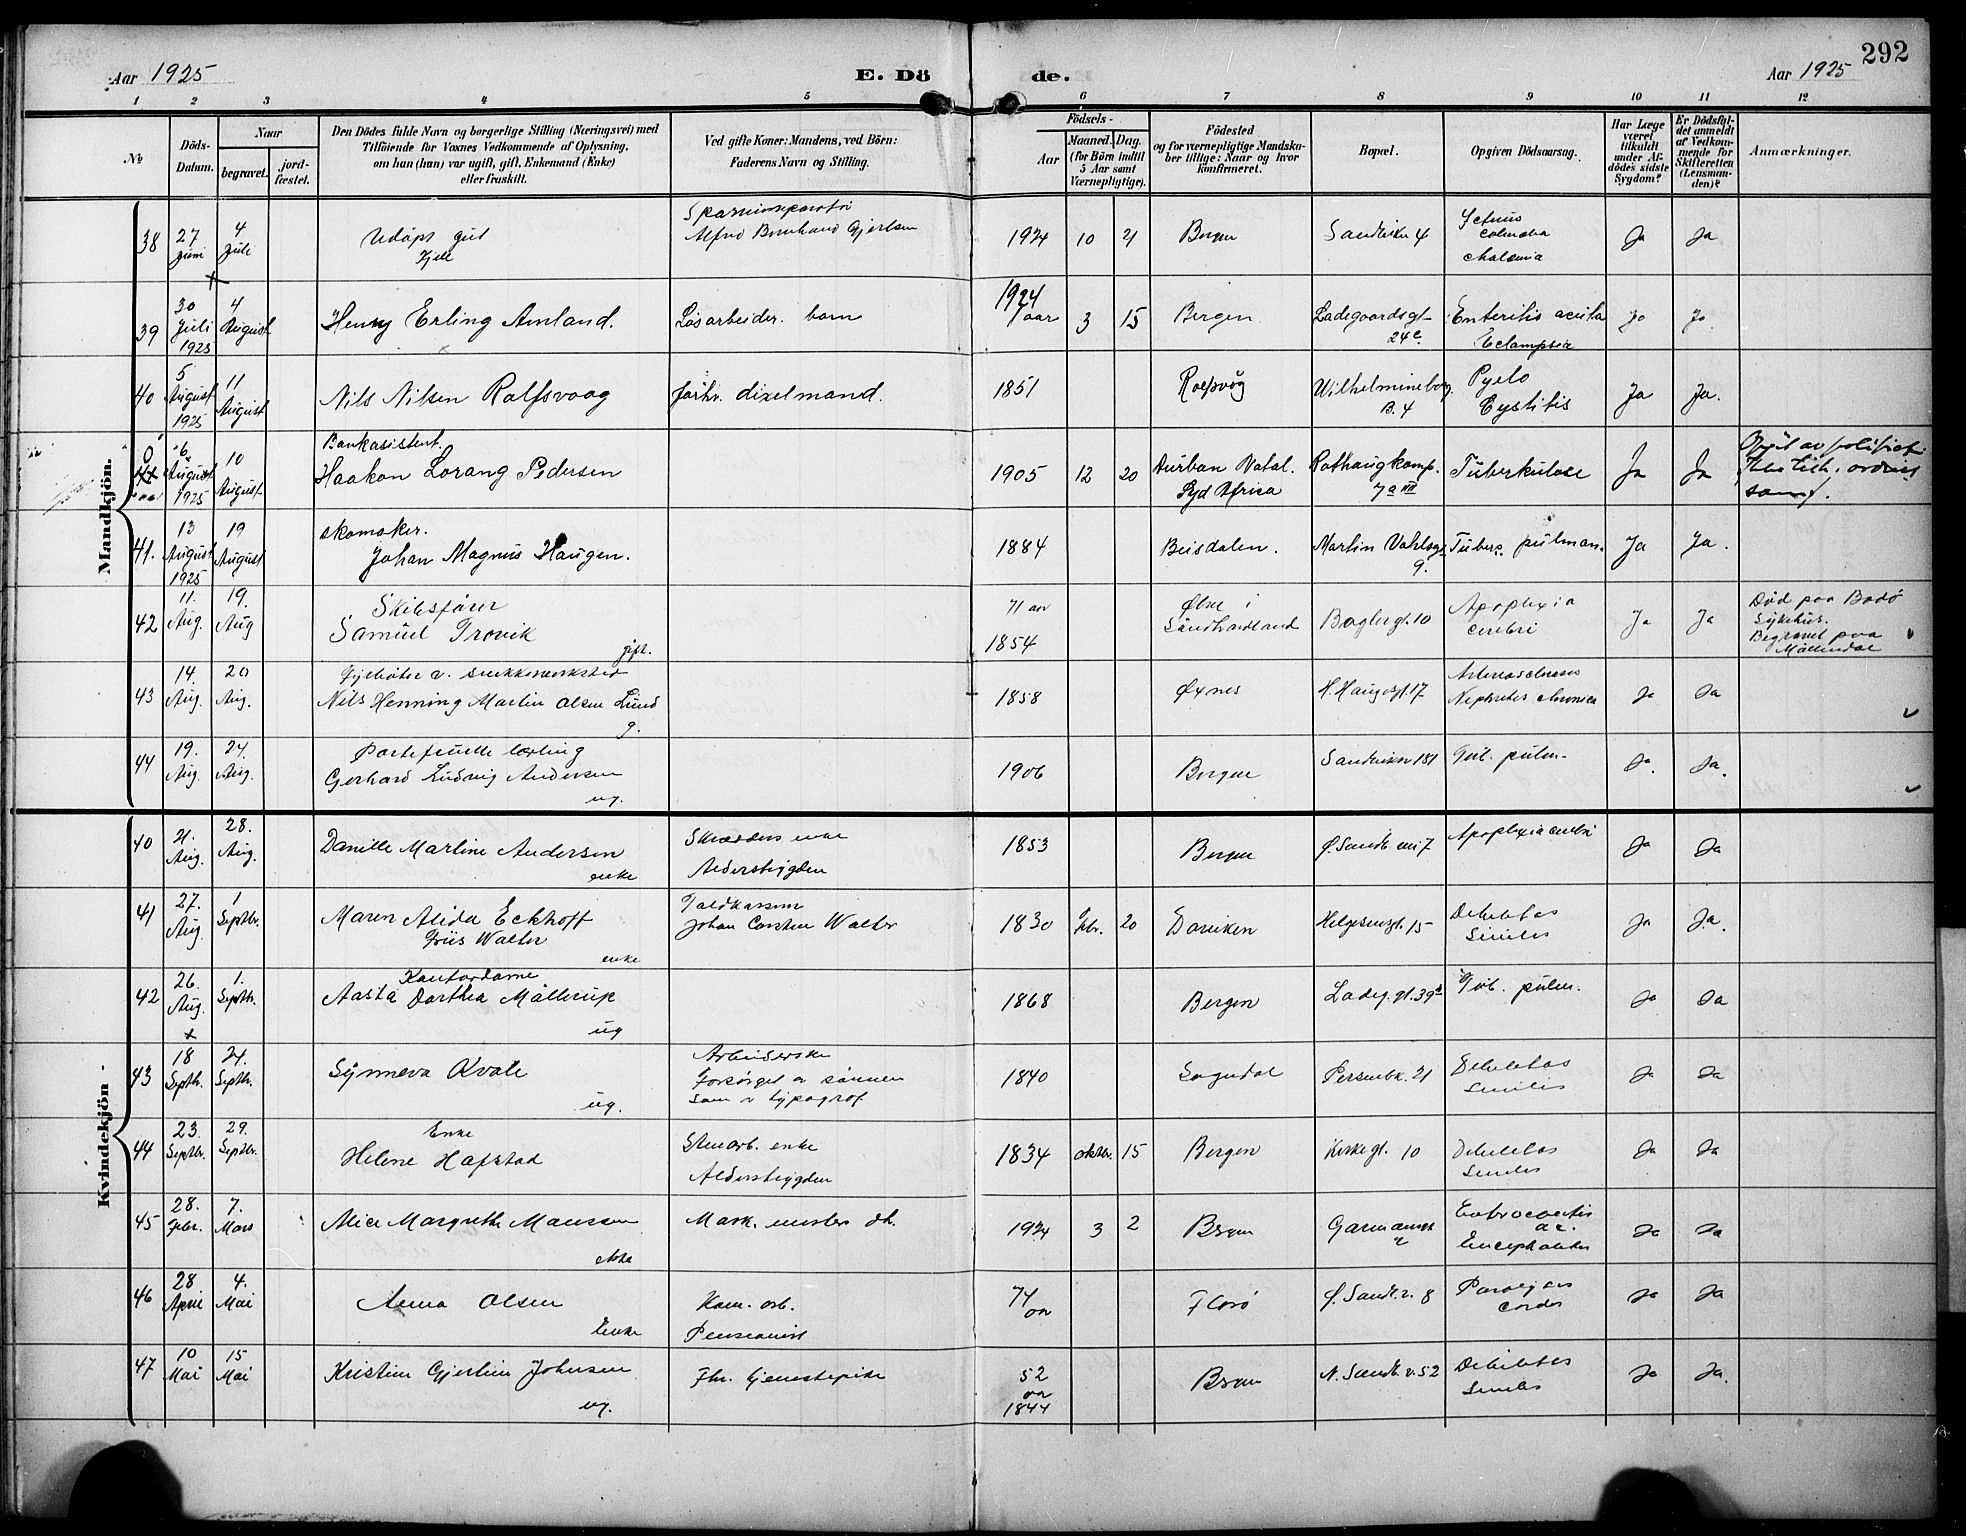 292
Aar 1925
E. Dö
de.
Aar 1925
1 2 3 4 5 6 7 8 9 10 11 12
№
Döds-
Datum.
Naar
begravet.
jord-
fæstet.
Den Dödes fulde Navn og borgerlige Stilling (Næringsvei) med
Tilföiende for Voxnes Vedkommende af Oplysning,
om han (hun) var ugift, gift, Enkemand (Enke)
eller fraskilt.
Ved gifte Koner: Mandens, ved Börn:
Faderens Navn og Stilling.
Födsels-
Aar
Maaned. Dag.
(for Börn indtil
5 Aar samt
Værnepligtige).
Födested
og for værnepligtige Mandska-
ber tillige: Naar og hvor
konfirmeret.
Bopæl.
Opgiven Dödsaarsag.
Har Læge
været
tilkaldt
under Af-
dödes sidste
Sygdom?
Er Dödsfal-
det anmeldt
af Vedkom-
mende for
Skifteretten
(Lensman-
den)?
Anmærkninger.
Mandkjön.
38 27 Juni 4 Juli
Udöpt gut
Alfred Bernhard Gjertsen
1924 10 21 Bergen Sandviken 4 Ja Ja
39 30 Juli 1925 4 August
Henry Erling Amland. Løsarbeider. barn
1924 1 aar 3 15 Bergen Ladegaardsgt 24c. Enteritis acuta Eclampsia Ja Ja
40 5 August 1925 11 August
Nils Nilsen Rolfsvaag forhv. dixelmand.
1851 Wilhelmineborg B. 4 Pyelo Cystitis Ja Ja.
6 August 1925 10 August
Bankasistent.
Haakon Lorang Pedersen
1905 12 20 Durban Natal. Syd Africa Rothaugkomp. 7a III Tuberkulose Ja Ja
41. 13 August 1925 19 August
skomaker.
Johan Magnus Haugen.
1884 Martin Vahlsgt 9. Tuberc. pulman. Ja Ja.
42 11. Aug. 19. Aug
Skibsfører
Samuel Trovik
gift.
71 aar 1854 Ølve i Søndhordland Baglergt. 10 Apoplexia cerebri Ja Ja
Död paa Bodø
Sykehus.
Begravet paa
Møllendal
43 14. Aug. 20 Aug.
Nils Henning Martin Olsen Lund
g.
1858 Øxnes H. Haugesgt. 17 Nephritis chronica Ja Ja
44 19. Aug. 24. Aug.
Portefeuille lærling
Gerhard Ludvig Andersen
ug.
1906 Bergen Sandviken 181 Tub. pulm. Ja. Ja.
Kvindekjön
40 21. Aug. 28. Aug.
Danille Martine Andersen
enke
Skrædders enke
Alderstrygden
1853 Bergen Ø. Sandv. vei 7 Apoplexia cerebri Ja Ja
41 27. Aug. 1 Septbr.
Maren Alida Eckhoff
Friis Walter
enke
Toldkasserer
Johan Carsten Walter
1830 Febr. 20 Helgesensgt. 15 Debilitas Senilis Ja Ja.
42 26. Aug. 1. Septbr.
Kontordame
Aasta Dorthea Møllerup
ug
1868 Bergen Ladeg. gt. 39b Tub. pulm. Ja Ja
43 18 Septbr. 24. Septbr.
Synneva Kvale
ug.
Arbeiderske
Forsörget av sønnen
som er typograf
1840 Sogndal Persenbk. 21 Debilitas Senilis Ja Ja
44 23. Septbr. 29. Septbr.
Enke
Helene Hafstad
Stenarb. enke
Alderstrygden
1834 oktbr. 15 Bergen Kirkegt. 10 Debilitas Senilis Ja Ja
45 28. Febr. 7. Mars
Alice Margrethe Monssen
Mask. mester
1924 3 2 Bergen Encephalitis Ja Ja
46 28 April 4. Mai
Anna Olsen
Enke
Kom. arb.
Pensionist
74 aar Florø Ø. Sandv. v. 8 cordis Ja Ja
47 10 Mai 15 Mai
Kristine Gjertine Johnsen
ug.
Fhv. tjenestepike
52 aar 1844 Bergen N. Sandv. v. 52 Debilitas Senilis Ja Ja.